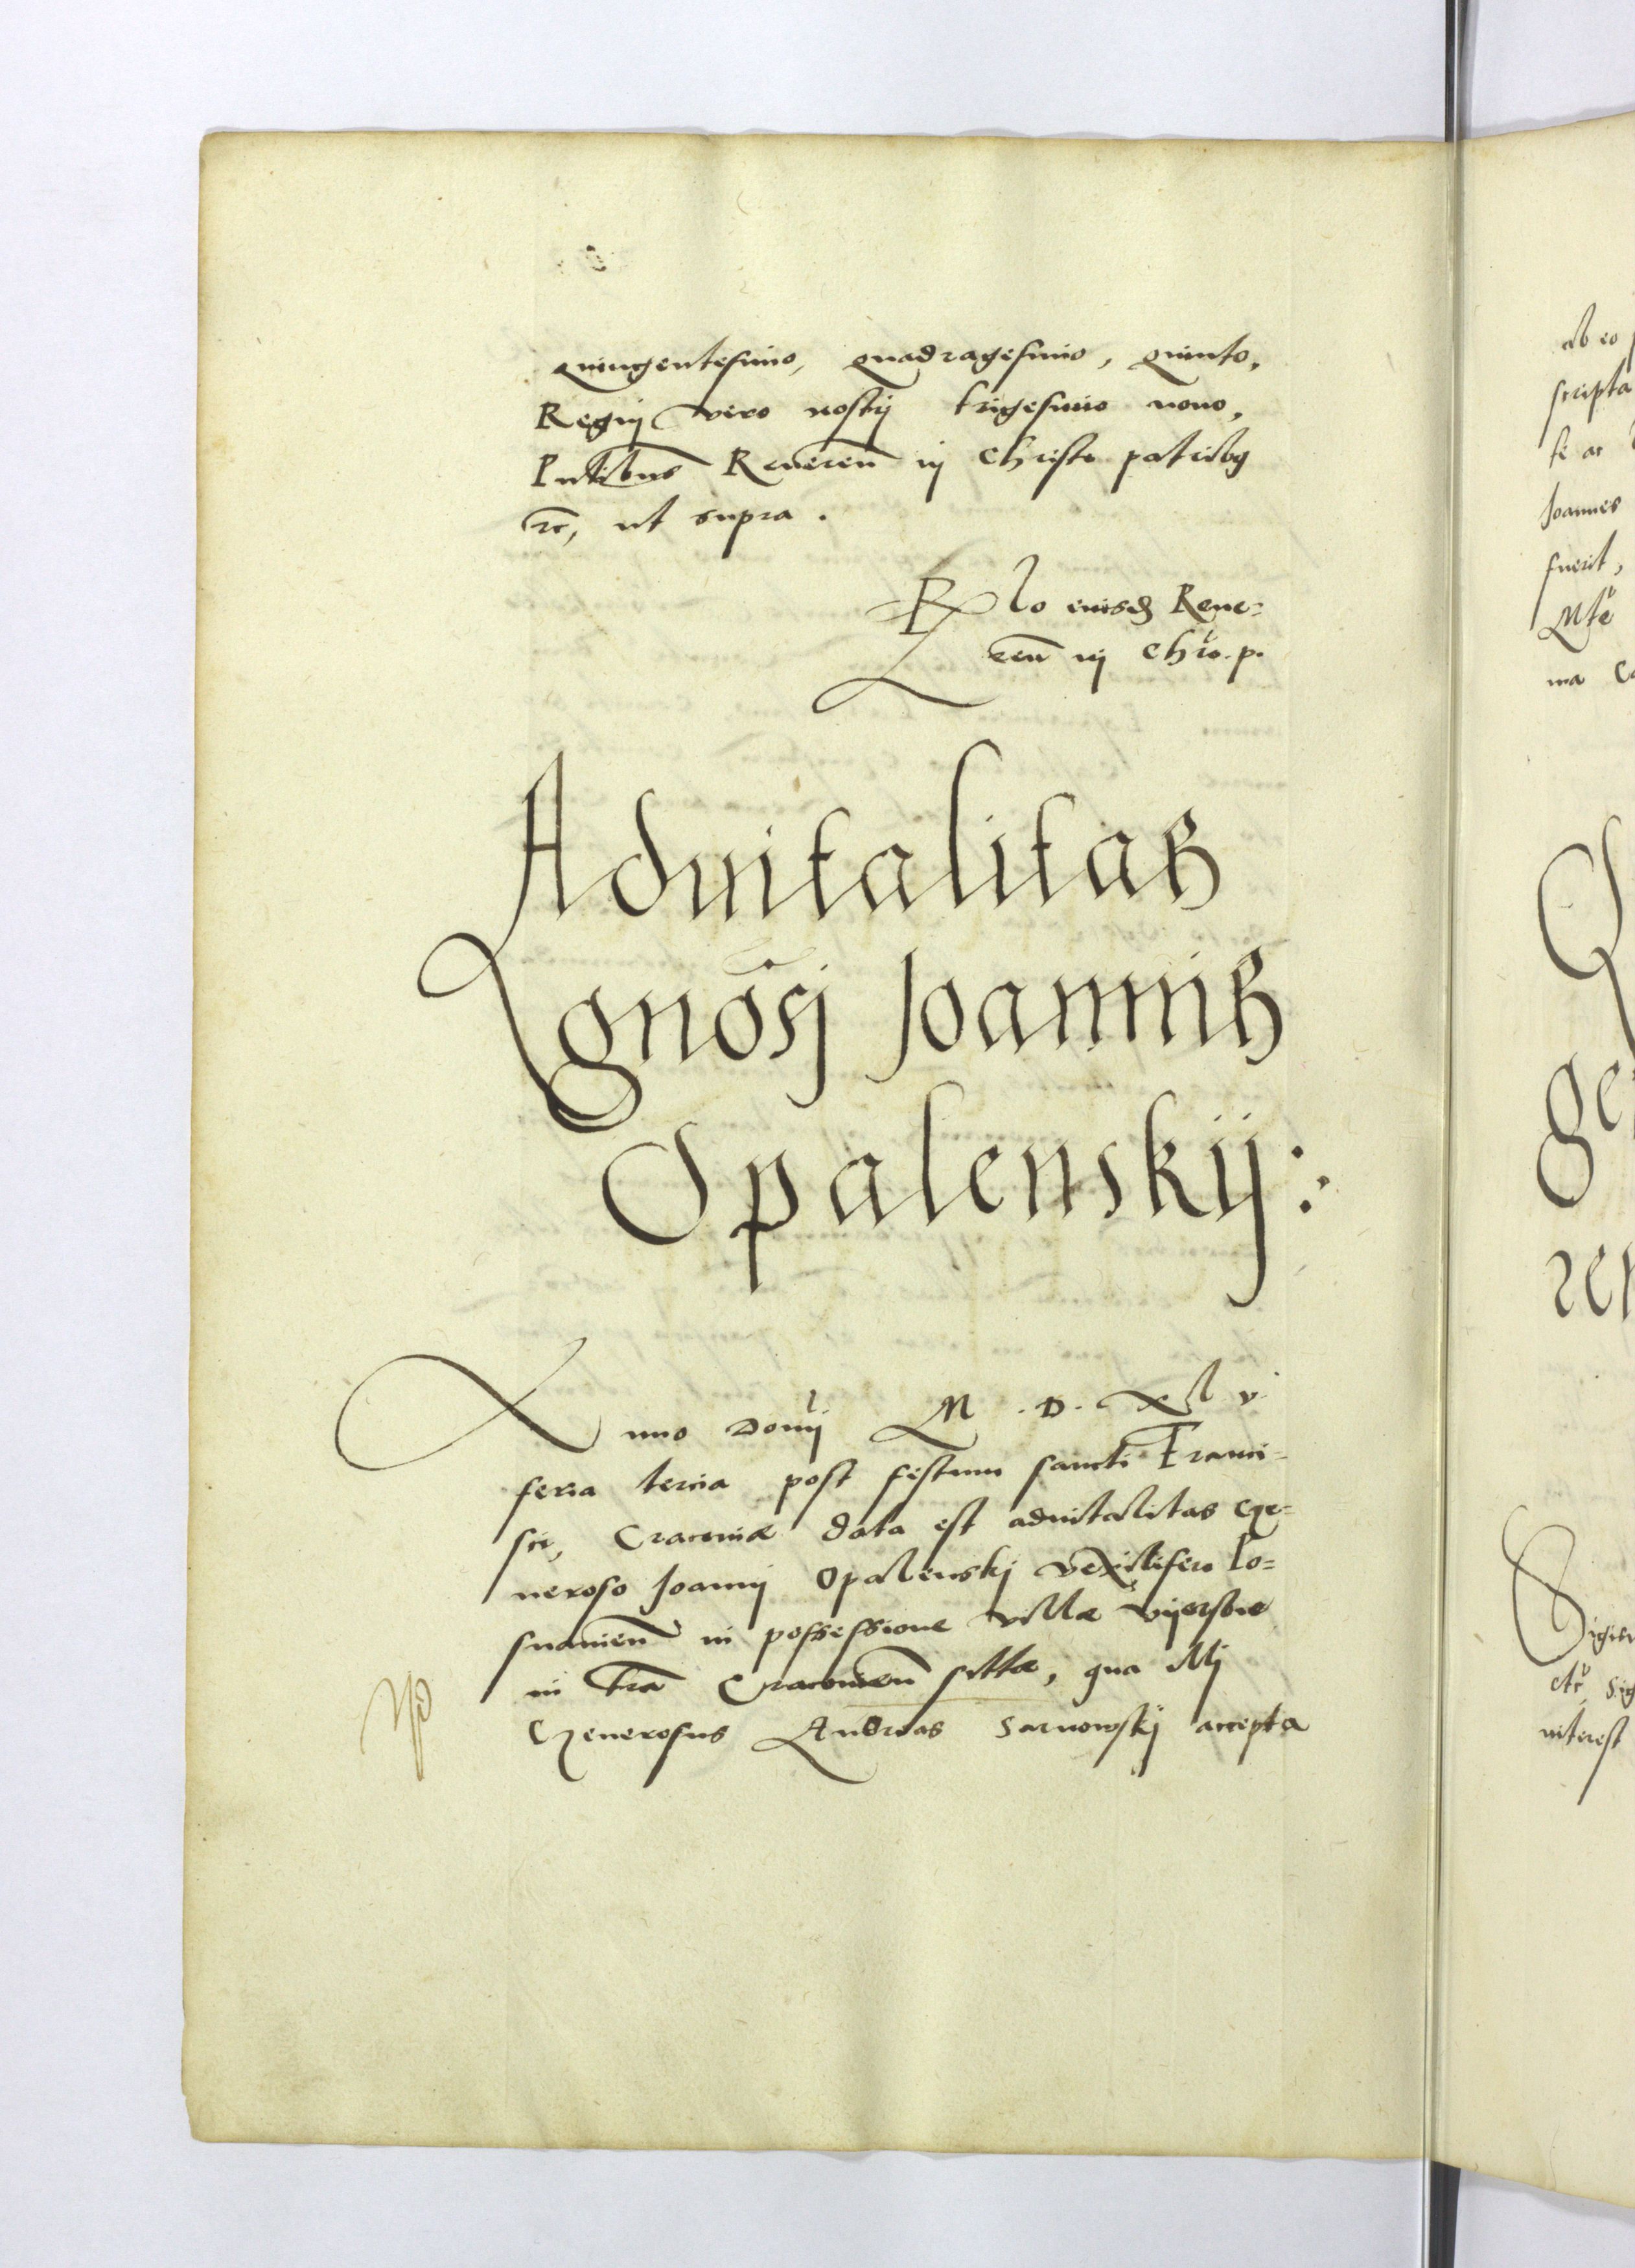 quingentesimo, quadragesimo, quinto,
Regnj vero nostrj trigesimo nono,
Pntibus Reveren in Christo patribus
etc, ut supra.
Rlo eiusdem Reve=
ren in Chro. p.
Advitalitas
gnosi Joannis
Opalenskij:
Anno Domini M.D.XLV
feria tercia post festum sancti Franci-
sci, Cracoviæ data est advitalitas Ge=
neroso Joannj Opalenskj vexillifero Po=
snanien in possessione villæ
in tra Cracovien sittæ, qua illj
Generosus Andreas Sarnowskj accepta
ab eo
scripta
Joannes
fuerit,
ma
ge
ren
interest